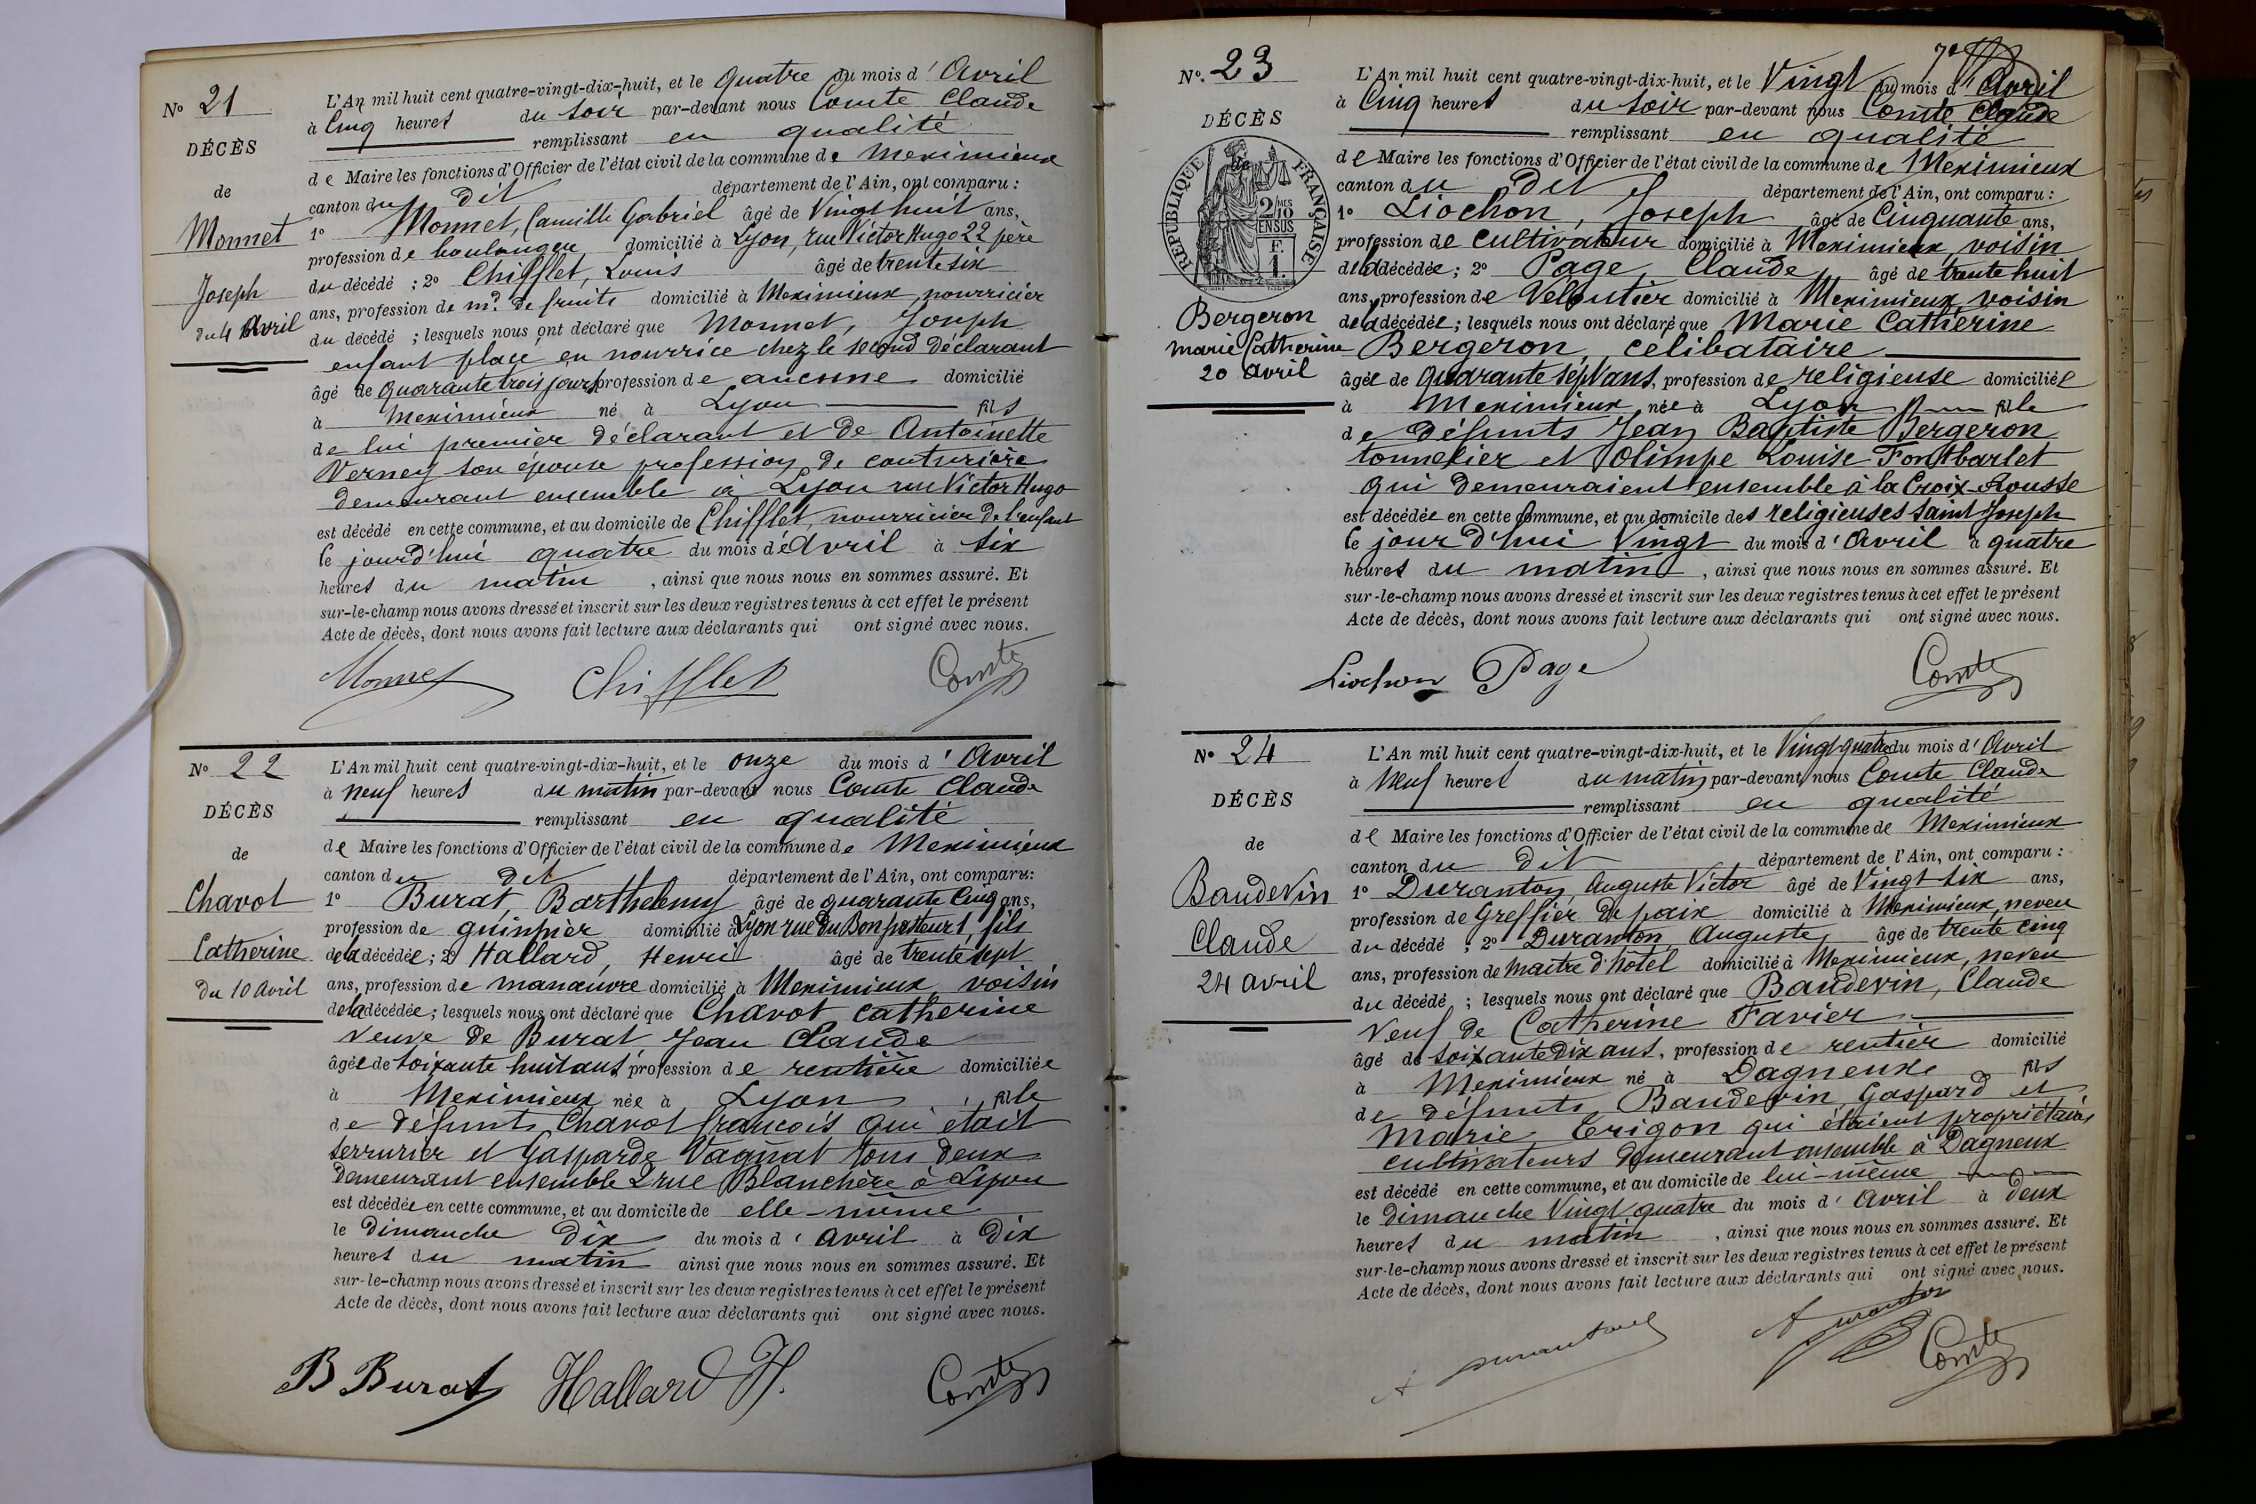 No 21
DÉCÈS
de
Monnet
Joseph
du 4 Avril
L'An mil huit cent quatre-vingt-dix-huit, et le quatre du mois d'Avril
à Cinq heures du soir par-devant nous Comte Claude
remplissant en qualité
de Maire les fonctions d'Officier de l'état civil de la commune de Meximieux
canton du dit département de l'Ain, ont comparu :
1o Monnet, Camille Gabriel âgé de Vingt huit ans,
profession de boulanger domicilié à Lyon, rue Victor Hugo 22 père
du décédé ; 2o Chifflet, Louis âgé de trente six
ans, profession de md. de fruits domicilié à Meximieux, nourricier
du décédé ; lesquels nous ont déclaré que Monnet, Joseph
enfant placé en nourrice chez le second déclarant
âgé de quarante trois jours profession de aucune domicilié
à Meximieux né à Lyon fils
de lui premier déclarant et de Antoinette
Verney son épouse profession de couturière
demeurant ensemble à Lyon rue Victor Hugo
est décédé en cette commune, et au domicile de Chifflet, nourricier de l'enfant
le jourd'hui quatre du mois d'Avril à six
heures du matin, ainsi que nous nous en sommes assuré. Et
sur-le-champ nous avons dressé et inscrit sur les deux registres tenus à cet effet le présent
Acte de décès, dont nous avons fait lecture aux déclarants qui ont signé avec nous.
Monnet Chifflet Comte
No 22
DÉCÈS
de
Chavot
Catherine
Du 10 Avril
L'An mil huit cent quatre-vingt-dix-huit, et le onze du mois d'Avril
à neuf heures du matin par-devant nous Comte Claude
remplissant en qualité
de Maire les fonctions d'Officier de l'état civil de la commune de Meximieux
canton du dit département de l'Ain, ont comparu :
1o Burat, Barthelemy âgé de quarante Cinq ans,
profession de guimpier domicilié à Lyon rue du Bon pasteur 1, fils
de la décédée ; 2o Hallard, Henri âgé de trente sept
ans, profession de manœuvre domicilié à Meximieux, voisin
de la décédée ; lesquels nous ont déclaré que Chavot Catherine
veuve de Burat Jean Claude
âgée de soixante huit ans, profession de rentière domiciliée
à Meximieux née à Lyon fille
de défunts Chavot françois qui était
serrurier et Gasparde Vagnat tous deux
demeurant ensemble 2 rue Blanchère à Lyon
est décédée en cette commune, et au domicile de elle-même
le Dimanche Dix du mois d'avril à Dix
heures du matin ainsi que nous nous en sommes assuré. Et
sur-le-champ nous avons dressé et inscrit sur les deux registres tenus à cet effet le présent
Acte de décès, dont nous avons fait lecture aux déclarants qui ont signé avec nous.
B Burat Hallard H. Comte
7e
No. 23
DÉCÈS
de
RÉPUBLIQUE FRANÇAISE
2/10 MES
EN SUS
F.
1.
Bergeron
Marie Catherine
20 avril
L'An mil huit cent quatre-vingt-dix-huit, et le Vingt du mois d'Avril
à Cinq heures du soir par-devant nous Comte Claude
remplissant en qualité
de Maire les fonctions d'Officier de l'état civil de la commune de Meximieux
canton du dit département de l'Ain, ont comparu :
1o Liochon, Joseph âgé de Cinquante ans,
profession de cultivateur domicilié à Meximieux, voisin
de la décédée ; 2o Page, Claude âgé de trente huit
ans, profession de Veloutier domicilié à Meximieux, voisin
de la décédée ; lesquels nous ont déclaré que Marie Catherine
Bergeron, célibataire
âgée de quarante sept ans, profession de religieuse domiciliée
à Meximieux née à Lyon fille
de défunts Jean Baptiste Bergeron
tonnelier et Olimpe Louise Fontbarlet
qui demeuraient ensemble à la Croix-Rousse
est décédée en cette commune, et au domicile des religieuses Saint Joseph
le jour d'hui Vingt du mois d'avril à quatre
heures du matin, ainsi que nous nous en sommes assuré. Et
sur-le-champ nous avons dressé et inscrit sur les deux registres tenus à cet effet le présent
Acte de décès, dont nous avons fait lecture aux déclarants qui ont signé avec nous.
Liochon Page Comte
No 24
DÉCÈS
de
Baudevin
Claude
24 avril
L'An mil huit cent quatre-vingt-dix-huit, et le Vingt quatre du mois d'Avril
à Neuf heures du matin par-devant nous Comte Claude
remplissant en qualité
de Maire les fonctions d'Officier de l'état civil de la commune de Meximieux
canton du dit département de l'Ain, ont comparu :
1o Duranton, Auguste Victor âgé de Vingt six ans,
profession de Greffier de paix domicilié à Meximieux, neveu
du décédé ; 2o Duranton, Auguste âgé de trente cinq
ans, profession de Maître d'hôtel domicilié à Meximieux, neveu
du décédé ; lesquels nous ont déclaré que Baudevin, Claude
Veuf de Catherine Favier
âgé de soixante dix ans, profession de rentier domicilié
à Meximieux né à Dagneux fils
de défunts Baudevin, Gaspard et
Marie Erigon qui étaient propriétaires
cultivateurs demeurant ensemble à Dagneux
est décédé en cette commune, et au domicile de lui-même
le dimanche Vingt quatre du mois d'Avril à deux
heures du matin, ainsi que nous nous en sommes assuré. Et
sur-le-champ nous avons dressé et inscrit sur les deux registres tenus à cet effet le présent
Acte de décès, dont nous avons fait lecture aux déclarants qui ont signé avec nous.
A Duranton A Duranton Comte